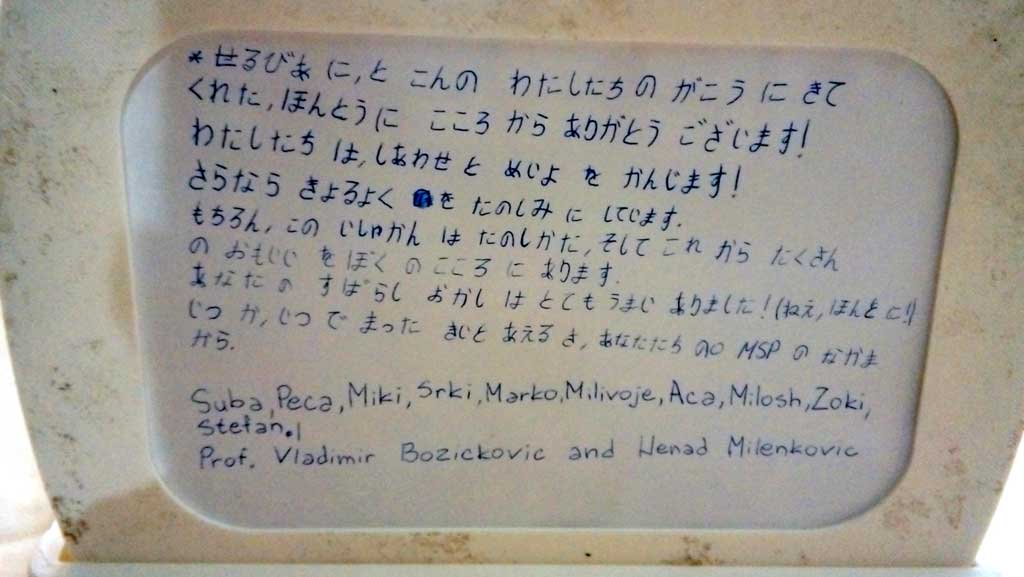 * せるびあ に,と こんの わたしたち の がこう に きて
くれた,ほんとうに こころ から ありがとう ございます!
わたしたち は,しあわせ と めじよ を かんじます!
さらなら きょるよく を たのしみ に してじます.
もちろん, この じしゅかん は たのしかた, そして これ から たくさん
の おもじじ を ぼく の こころ に あります.
あなた の すばらし おかし は とても うまじ ありました! (ねえ, ほんとに!)
じつ か, じつ で まった きじと あえる さ, あなたたち の MSP の なかま
から.
Suba, Peca, Miki, Srki, Marko, Milivoje, Aca, Milosh, Zoki,
Stefan.
Prof. Vladimir Bozickovic and Nenad Milenkovic